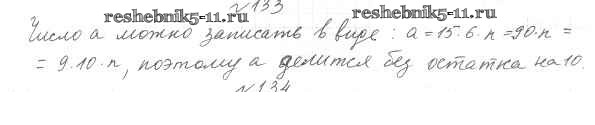 №133
reshebnik5-11.ru
Число a можно записать в виде: a = 15·6·n = 90·n =
= 9·10·n, поэтому a делится без остатка на 10.
reshebnik5-11.ru
№134